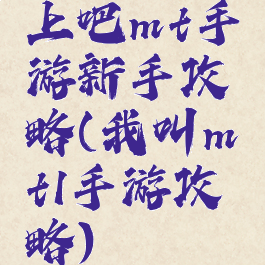 上吧mt手
游新手攻
略(我叫m
t1手游攻
略)